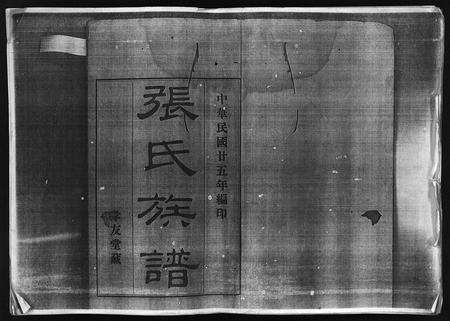 中華民國廿五年編印
張氏族譜
孝友堂藏